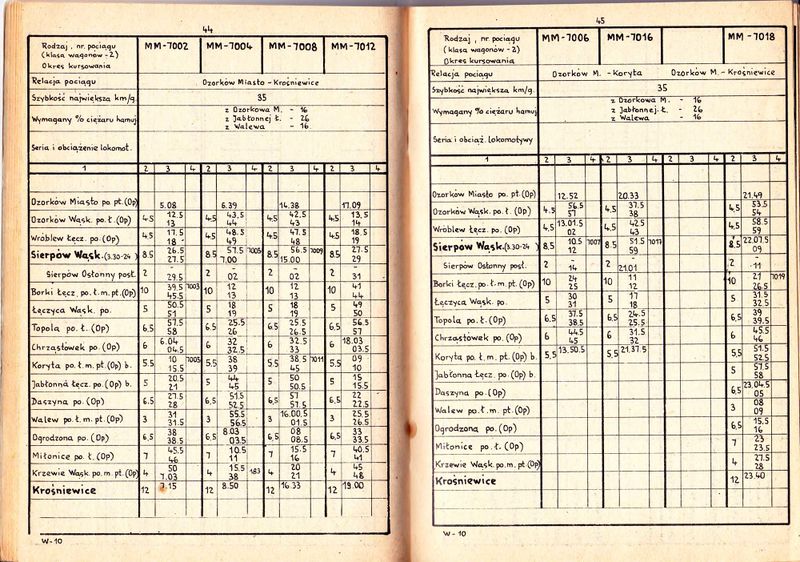 44
Rodzaj, nr. pociągu
(klasa wagonów - 2)
Okres kursowania
MM-7002 MM-7004 MM-7008 MM-7012
Relacja pociągu Ozorków Miasto - Krośniewice
Szybkość największa km/g. 35
Wymagany % ciężaru hamuj.
z Ozorkowa M. - 16
z Jabłonnej Ł. - 26
z Walewa - 16
Seria i obciążenie lokomot.
1 2 3 4 2 3 4 2 3 4 2 3 4
Ozorków Miasto po pt. (Op) 5.08 6.39 14.38 17.09
Ozorków Wąsk. po. ł. (Op) 4.5 12.5 4.5 43.5 4.5 42.5 4.5 13.5
13 44 43 14
Wróblew Łęcz. po (Op) 4.5 17.5 4.5 48.5 4.5 47.5 4.5 18.5
18 49 48 19
Sierpów Wąsk. (3.30-24) 8.5 26.5 8.5 57.5 7005 8.5 56.5 7009 8.5 27.5
27.5 7.00 15.00 29
Sierpów Osłonny post. 2 - 2 - 2 - 2 -
29.5 02 02 31
Borki Łęcz. po. ł. m. pt. (Op) 10 39.5 7003 10 12 10 12 10 41
45.5 13 13 44
Łęczyca Wąsk. po. 5 50.5 5 18 5 18 5 49
51 19 19 50
Topola po. ł. (Op) 6.5 57.5 6.5 25.5 6.5 25.5 6.5 56.5
58 26 26.5 57
Chrząstówek po. (Op) 6 6.04 6 32 6 32.5 6 18.03
04.5 32.5 33 03.5
Koryta po ł. m. pt. (Op) b. 5.5 10 7005 5.5 38 5.5 38.5 7011 5.5 09
15.5 39 45 10
Jabłonna Łęcz. po. (Op) b. 5 20.5 5 44 5 50 5 15
21 45 50.5 15.5
Daszyna po. (Op) 6.5 27.5 6.5 51.5 6.5 57 6.5 22
28 52.5 57.5 22.5
Walew po. ł. m. pt. (Op) 3 31 3 55.5 3 16.00.5 3 25.5
31.5 56.5 01.5 26.5
Ogrodzona po. (Op) 6.5 38 6.5 8.03 6.5 08 6.5 33
38.5 03.5 08.5 33.5
Miłonice po. ł. (Op) 7 45.5 7 10.5 7 15.5 7 40.5
46 11 16 41
Krzewie Wąsk. po. m. pt. (Op) 4 50 4 15.5 183 4 20 4 45
7.03 38 21 48
Krośniewice 12 7.15 12 8.50 12 16.33 12 19.00
W-10
45
Rodzaj, nr. pociągu
(klasa wagonów - 2)
Okres kursowania
MM-7006 MM-7016 MM-7018
Relacja pociągu Ozorków M. - Koryta Ozorków M. - Krośniewice
Szybkość największa km/g. 35
Wymagany % ciężaru hamuj.
z Ozorkowa M. - 16
z Jabłonnej Ł. - 26
z Walewa - 16
Seria i obciąż. lokomotywy
1 2 3 4 2 3 4 2 3 4 2 3 4
Ozorków Miasto po. pt. (Op) 12.52 20.33 21.49
Ozorków Wąsk. po. ł. (Op) 4.5 56.5 4.5 37.5 4.5 53.5
57 38 54
Wróblew Łęcz. po. (Op) 4.5 13.01.5 4.5 42.5 4.5 58.5
02 43 59
Sierpów Wąsk. (3.30-24) 8.5 10.5 7007 8.5 51.5 7017 8.5 22.07.5
12 59 09
Sierpów Osłonny post. 2 - 2 - 2 -
14 21.01 11
Borki Łęcz. po. ł. m. pt. (Op) 10 24 10 11 10 21 7019
25 12 26.5
Łęczyca Wąsk. po. 5 30 5 17 5 31.5
31 18 32.5
Topola po. ł. (Op) 6.5 37.5 6.5 24.5 6.5 39
38.5 25.5 39.5
Chrząstówek po. (Op) 6 44.5 6 31.5 6 45.5
45 32 46
Koryta po ł. m. pt. (Op) b. 5.5 13.50.5 5.5 21.37.5 5.5 51.5
52.5
Jabłonna Łęcz. po. (Op) b. 5 57.5
58
Daszyna po. (Op) 6.5 23.04.5
05
Walew po. ł. m. pt. (Op) 3 08
09
Ogrodzona po. (Op) 6.5 15.5
16
Miłonice po. ł. (Op) 7 23
23.5
Krzewie Wąsk. po. m. pt. (Op) 4 27.5
28
Krośniewice 12 23.40
W-10